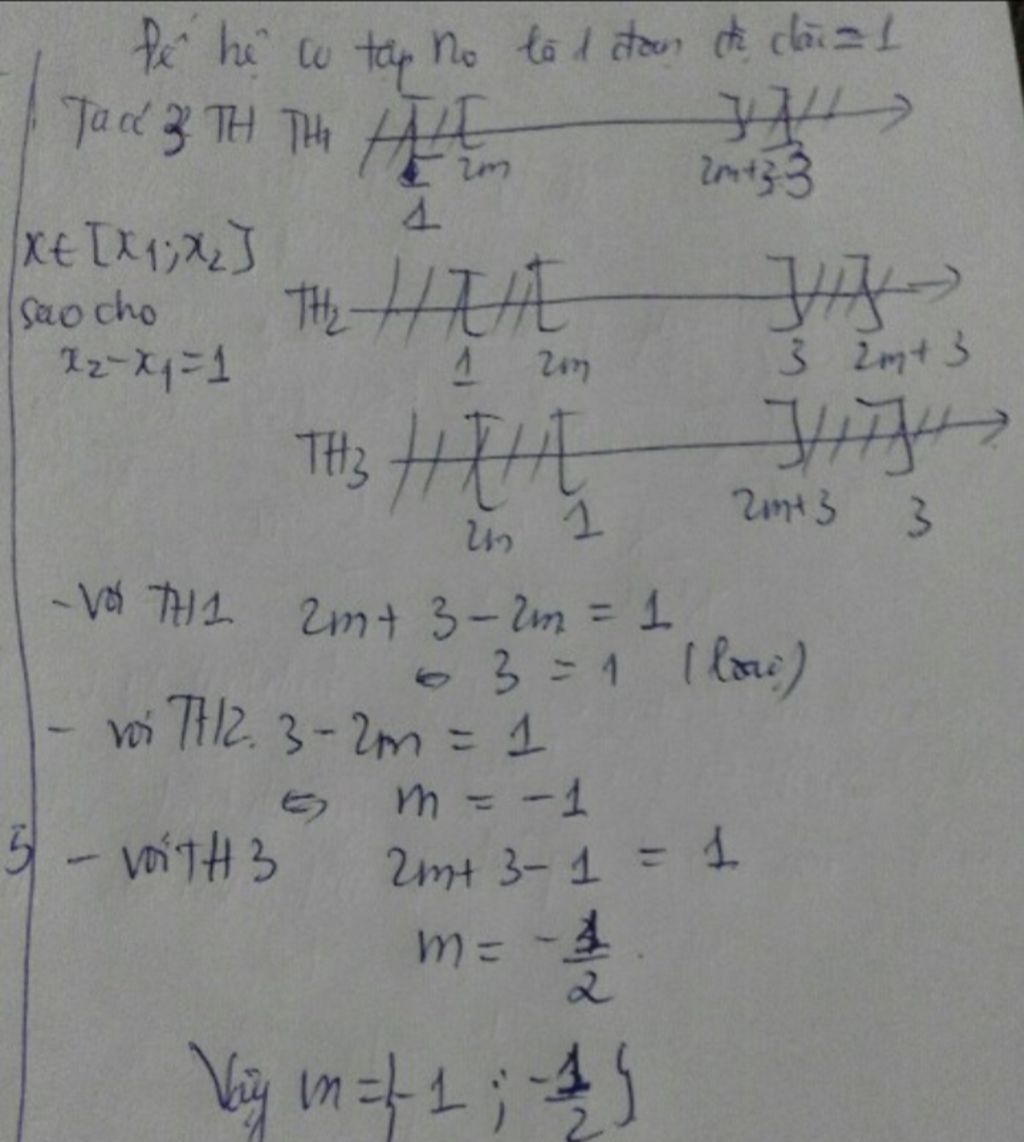 Để hệ có tập no là 1 đoạn độ dài = 1
Ta có 3 TH TH1
1 2m 2m+3 3
x∈[x₁;x₂]
sao cho
x₂-x₁=1
TH2
1 2m 3 2m+3
TH3
2m 1 2m+3 3
- Với TH1 2m+3-2m=1
⇔ 3=1 (loại)
- với TH2. 3-2m=1
⇔ m=-1
5
- với TH3 2m+3-1=1
m=-1/2
Vậy m={-1;-1/2}